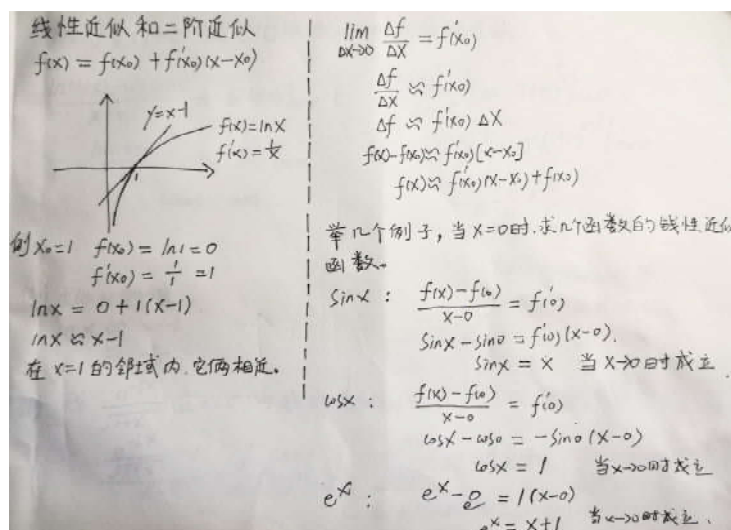 线性近似和二阶近似
f(x) = f(x₀) + f'(x₀)(x-x₀)
y=x-1
f(x)=lnx
f'(x)=1/x
1
例 x₀=1 f(x₀) = ln1 = 0
f'(x₀) = 1/1 = 1
lnx = 0 + 1(x-1)
lnx ≈ x-1
在 x=1 的邻域内,它俩相近。
lim Δx→0 Δf/Δx = f'(x₀)
Δf/Δx ≈ f'(x₀)
Δf ≈ f'(x₀) Δx
f(x)-f(x₀) ≈ f'(x₀)[x-x₀]
f(x) ≈ f'(x₀)(x-x₀)+f(x₀)
举几个例子,当 x=0时,求几个函数的线性近似
函数。
sinx : (f(x)-f(0))/(x-0) = f'(0)
sinx - sin0 = f'(0)(x-0).
sinx = x 当 x→0时成立
cosx : (f(x)-f(0))/(x-0) = f'(0)
cosx - cos0 = -sin0 (x-0)
cosx = 1 当x→0时成立
eˣ : eˣ - e⁰ = 1(x-0)
eˣ = x+1 当x→0时成立.